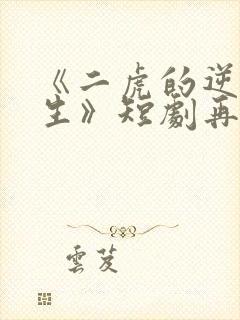 《二虎的逆
生》短劇再
雲芨